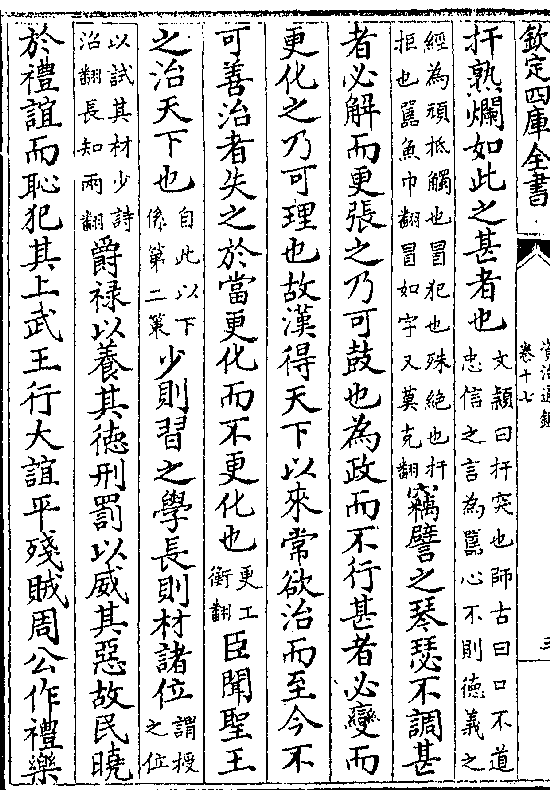 欽定四庫全書
資治通鑑
卷十七
三
扞熟爛如此之甚者也文穎曰扞突也師古曰口不道忠信之言為嚚心不則德義之
經為頑抵觸也冒犯也殊絶也扞拒也嚚魚巾翻冒如字又莫克翻竊譬之琴瑟不調甚
者必解而更張之乃可鼓也為政而不行甚者必變而
更化之乃可理也故漢得天下以來常欲治而至今不
可善治者失之於當更化而不更化也更工衡翻臣聞聖王
之治天下也自此以下係第二策少則習之學長則材諸位謂授之位
以試其材少詩沼翻長知兩翻爵禄以養其徳刑罰以威其惡故民曉
於禮誼而恥犯其上武王行大誼平殘賊周公作禮樂